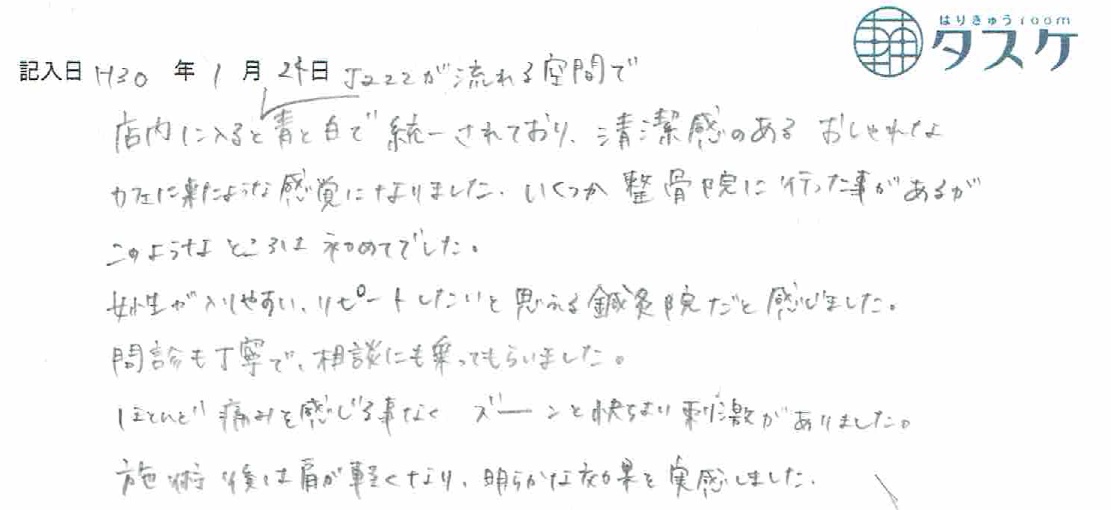 はりきゅうroom
タスケ
記入日 H30 年 1 月 24日 Jazzが流れる空間で
店内に入ると青と白で統一されており、清潔感のある おしゃれな
カフェに来たような感覚になりました。いくつか整骨院に行った事があるが
このようなところは初めてでした。
女性が入りやすい、リピートしたいと思える鍼灸院だと感じました。
問診も丁寧で、相談にも乗ってもらいました。
ほとんど痛みを感じる事なく ズーンと快ちよい刺激がありました。
施術後は肩が軽くなり、明らかな効果を実感しました。